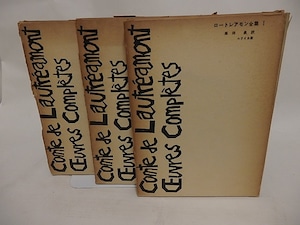 Comte de Lautréamont
Œuvres Complètes
Comte de Lautréamont
Œuvres Complètes
Comte de Lautréamont
Œuvres Complètes
ロートレアモン全集 I